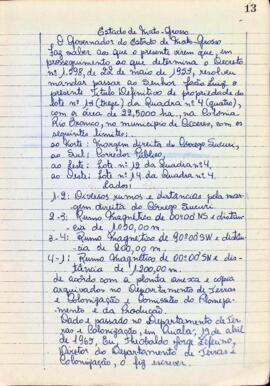 13
Estado de Mato-Grosso
O Governador do Estado de Mato-Grosso
Faz saber ao que o presente virem que, em
prosseguimento ao que determina o Decreto
nº 1.598, de 22 de maio de 1953, resolveu
mandar passar ao Senhor João Luiz, o
presente Titulo Definitivo de propriedade do
lote nº 13 (treze) da Quadra nº 4 (quatro),
com a área de 22,5000 ha., na Colonia
Rio Branco, no municipio de Cáceres, com os
seguintes limites:
ao Norte: Margem direita do Corrego Sucuri
ao Sul: Corredor Publico,
ao Leste: Lote nº 12 da Quadra nº 4,
ao Oeste: Lote nº 14 da Quadra nº 4.
Lados:
1-2: Diversos rumos e distancias pela mar
gem direita do Corrego Sucuri
2-3: Rumo Magnético de 00º00'NS e distân
cia de 1.050,00 m.
3-4: Rumo Magnético de 90º00'SW e distân
cia de 200,00 m.
4-1: Rumo Magnético de 00º00'SV e dis-
tância de 1.200,00 m.
de acôrdo com a planta anexa e copia
arquivados no Departamento de Terras
e Colonização e Comissão do Planeja-
mento e da Produção.
Dado e passado no Departamento de Ter
ras e Colonização, em Cuiabá, 19 de abril
de 1965. Eu, Theobaldo Jorge Zeferino,
Diretor do Departamento de Terras e
Colonização, o fiz escrever.